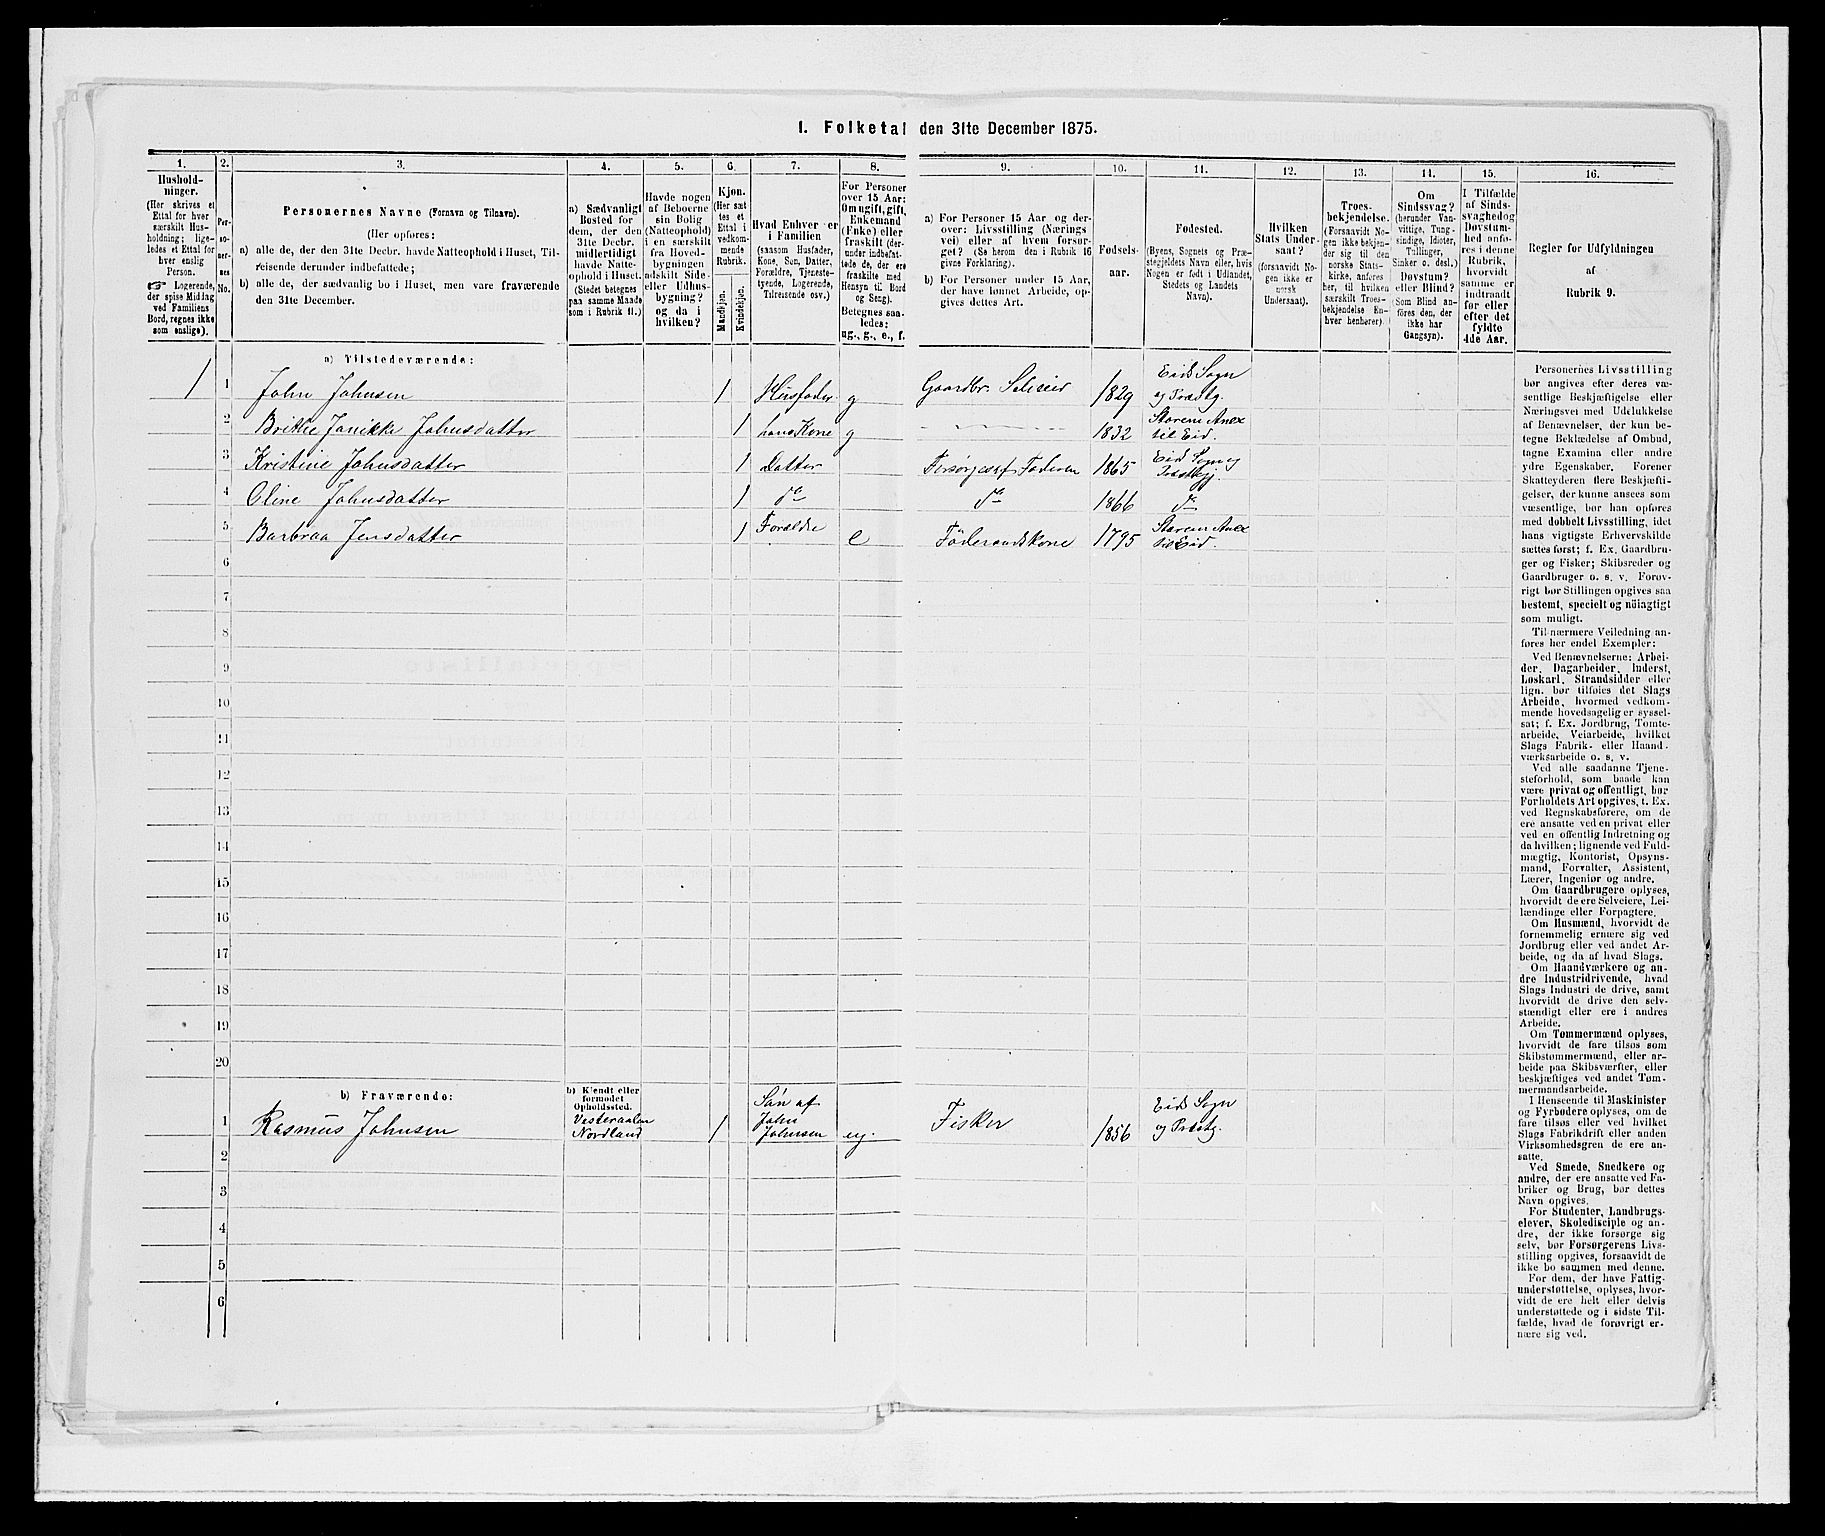 1. Folketal den 31te December 1875.
1. 2. 3. 4. 5. 6. 7. 8. 9. 10. 11. 12. 13. 14. 15. 16.
Hushold-
ninger.
(Her skrives et
Ettal for hver
særskilt Hus-
holdning; lige-
ledes et Ettal for
hver enslig
Person.
☞ Logerende,
der spise Middag
ved Familiens
Bord, regnes ikke
som enslige).
Per-
so-
ner-
nes
No.
Personernes Navne (Fornavn og Tilnavn).
(Her opføres:
a) alle de, der den 31te Decbr. havde Natteophold i Huset, Til-
reisende derunder indbefattede;
b) alle de, der sædvanlig bo i Huset, men vare fraværende
den 31te December.
a) Sædvanligt
Bosted for
dem, der den
31te Decbr.
midlertidigt
havde Natte-
ophold i Huset.
(Stedet betegnes
paa samme Maade
som i Rubrik 11.)
Havde nogen
af Beboerne
sin Bolig
(Natteophold)
i en særskilt
fra Hoved-
bygningen
adskilt Side-
eller Udhus-
bygning?
og da i
hvilken?
Kjøn.
(Her sæt
tes et
Ettal i
vedkom-
mende
Rubrik.
Mandkjøn.
Kvindekjøn.
Hvad Enhver er
i Familien
(saasom Husfader,
Kone, Søn, Datter,
Forældre, Tjeneste-
tyende, Logerende,
Tilreisende osv.)
For Personer
over 15 Aar:
Om ugift, gift,
Enkemand
(Enke) eller
fraskilt (der-
under indbefat-
tede de, der ere
fraskilte med
Hensyn til Bord
og Seng).
Betegnes saa-
ledes:
ug., g., e., f.
a) For Personer 15 Aar og der-
over: Livsstilling (Nærings
vei) eller af hvem forsør-
get? (Se herom den i Rubrik 16
givne Forklaring).
b) For Personer under 15 Aar,
der have lønnet Arbeide, op-
gives dettes Art.
Fødsels-
aar.
Fødested.
(Byens, Sognets og Præ-
stegjeldets Navn eller, hvis
Nogen er født i Udlandet,
Stedets og Landets
Navn).
Hvilken
Stats Under-
saat?
(forsaavidt No-
gen ikke er
norsk
Undersaat).
Troes-
bekjendelse.
(Forsaavidt No-
gen ikke bekjen-
der sig til den
norske Stats-
kirke, anføres
her, til hvilken
særskilt Troes-
bekjendelse En-
hver henhører)
Om
Sindssvag?
(herunder Van-
vittige, Tung-
sindige, Idioter,
Tullinger,
Sinker o. desl.)
Døvstum?
eller Blind?
(Som Blind an-
føres den, der
ikke har
Gangsyn).
I Tilfælde
af Sinds-
svaghed og
Døvstum-
hed anfø-
res i denne
Rubrik,
hvorvidt
samme er
indtraadt
før eller
efter det
fyldte
4de Aar.
Regler for Udfyldningen
af
Rubrik 9.
a) Tilstedeværende:
1 1 John Johnsen 1 Husfader g Gaardbr. Selveier 1829 Eids Sogn
og Præstg.
2 Brithe Janikke Johnsdatter 1 hans Kone g 1832 Starens Anex
til Eid.
3 Kristine Johnsdatter 1 Datter Forsørges af Faderen 1865 Eids Sogn og
Præstegj.
4 Oline Johnsdatter 1 do do 1866 do
5 Barbraa Jensdatter 1 Forældre e Føderaadskone 1795 Starens Anex
til Eid.
6
7
8
9
10
11
12
13
14
15
16
17
18
19
20
b) Fraværende:
b) Kjendt eller
formodet
Opholdssted.
1 Rasmus Johnsen Vesteraalen
Nordland 1 Søn af
John
Johnsen ug. Fisker 1856 Eids Sogn
og Præstg.
2
3
4
5
6
Personernes Livsstilling
bør angives efter deres væ-
sentlige Beskjæftigelse eller
Næringsvei med Udelukkelse
af Benævnelser, der kun be-
tegne Beklædelse af Ombud,
tagne Examina eller andre
ydre Egenskaber. Forener
Skatteyderen flere Beskjæfti-
gelser, der kunne ansees som
væsentlige, bør han opføres
med dobbelt Livsstilling, idet
hans vigtigste Erhvervskilde
sættes først; f. Ex. Gaardbru-
ger og Fisker; Skibsreder og
Gaardbruger o. s. v. Forøv-
rigt bør Stillingen opgives saa
bestemt, specielt og nöiagtigt
som muligt.
Til nærmere Veiledning an-
føres her endel Exempler:
Ved Benævnelserne: Arbei-
der, Dagarbeider, Inderst,
Løskarl, Strandsidder eller
lign. bør tilføies det Slags
Arbeide, hvormed vedkom-
mende hovedsagelig er syssel-
sat; f. Ex. Jordbrug, Tomte-
arbeide, Veiarbeide, hvilket
Slags Fabrik- eller Haand-
værksarbeide o. s. v.
Ved alle saadanne Tjene-
steforhold, som baade kan
være privat og offentligt, bør
Forholdets Art opgives, t. Ex.
ved Regnskabsførere, om de
ere ansatte ved en privat eller
ved en offentlig Indretning og
da hvilken; lignende ved Fuld-
mægtig, Kontorist, Opsyns-
mand, Forvalter, Assistent,
Lærer, Ingeniør og andre.
Om Gaardbrugere oplyses,
hvorvidt de ere Selveiere, Lei-
lændinge eller Forpagtere.
Om Husmænd, hvorvidt de
fornemmelig ernære sig ved
Jordbrug eller ved andet Ar-
beide, og da af hvad Slags.
Om Haandværkere og an-
dre Industridrivende, hvad
Slags Industri de drive, samt
hvorvidt de drive den selv-
stændigt eller ere i andres
Arbeide.
Om Tømmermænd oplyses,
hvorvidt de fare tilsøs som
Skibstømmermænd, eller ar-
beide paa Skibsværfter, eller
beskjæftiges ved andet Tøm-
mermandsarbeide.
I Henseende til Maskinister
og Fyrbødere oplyses, om de
fare tilsøs eller ved hvilket
Slags Fabrikdrift eller anden
Virksomhedsgren de ere an-
satte.
Ved Smede, Snedkere og
andre, der ere ansatte ved Fa-
briker og Brug, bør dettes
Navn opgives.
For Studenter, Landbrugs-
elever, Skoledisciple og an-
dre, der ikke forsørge sig
selv, bør Forsørgerens Livs-
stilling opgives, forsaavidt de
ikke bo sammen med denne.
For dem, der have Fattig-
understøttelse, oplyses, hvor-
vidt de ere helt eller delvis
understøttede og i sidste Til-
fælde, hvad de forøvrigt er-
nære sig ved.